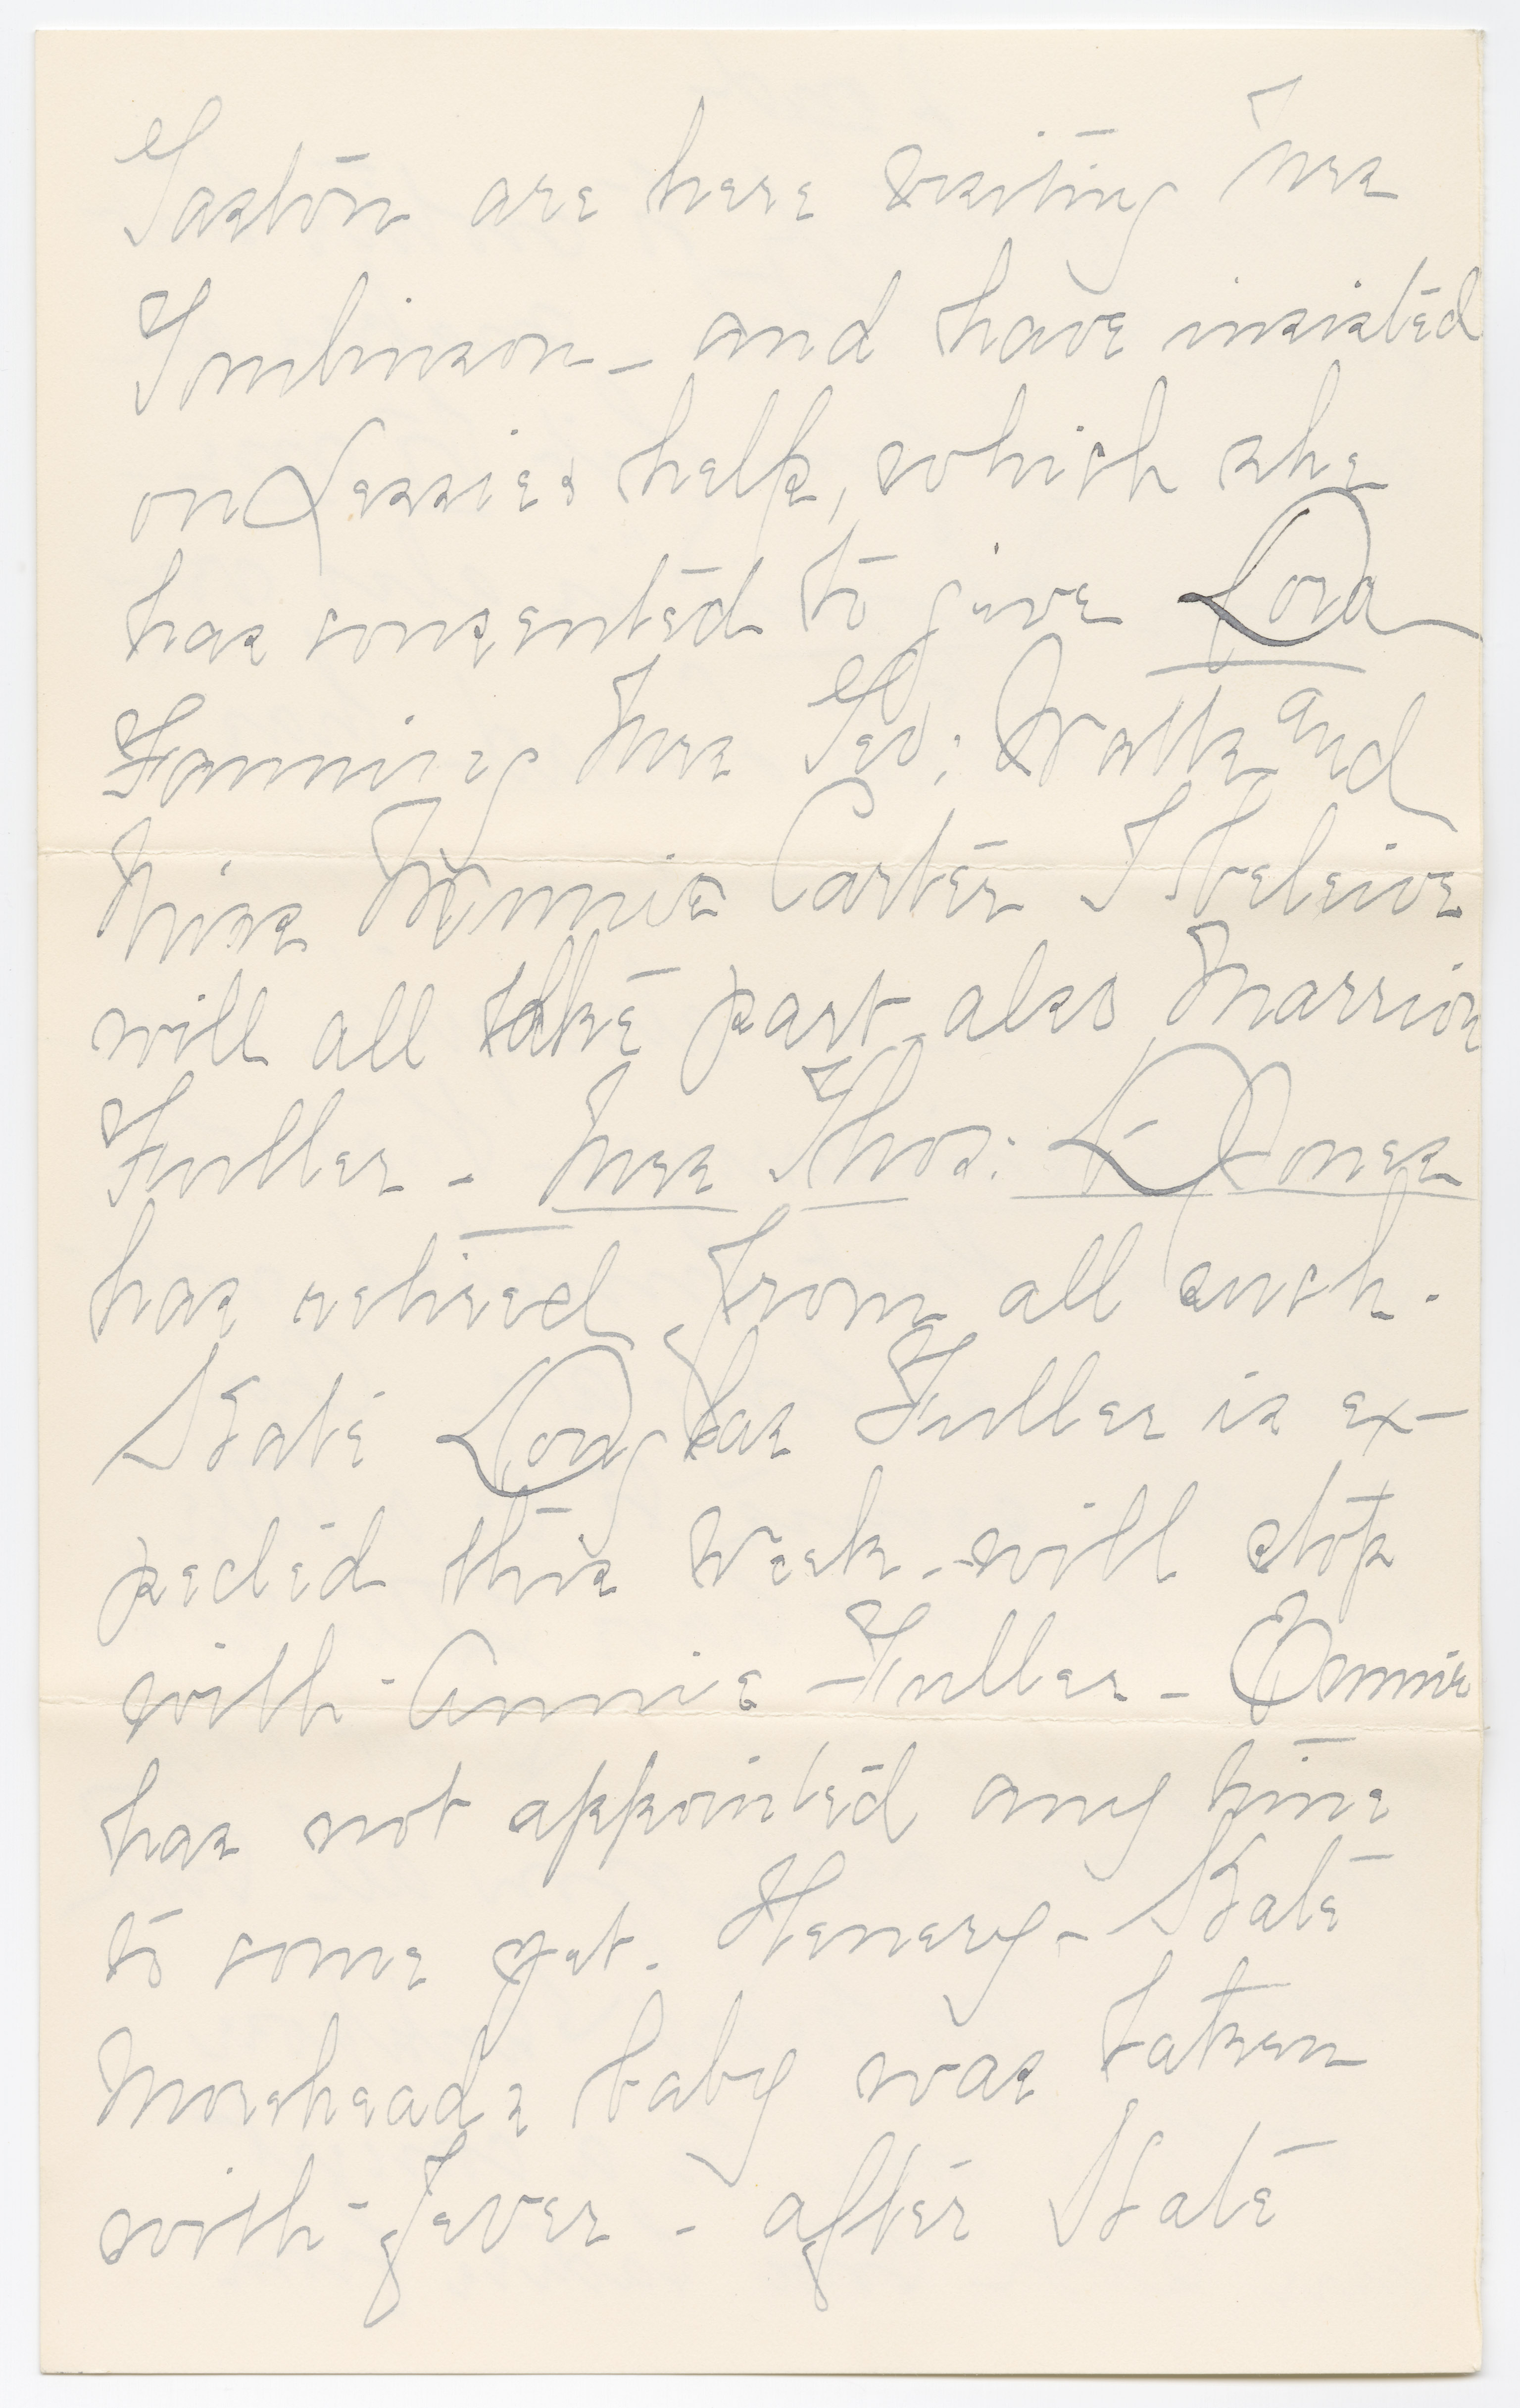 Gaston are here visiting Mrs
Tomlinson - and have insisted
on Lessies help, which she
has consented to give Dora
Fannies Mrs Geo: Watts and
Miss Minnie Carter I beleive
will all take part also Marrion
Fuller - Mrs Thos: D Jones
has retired from all such.
Kate Douglas Fuller is ex-
pected this week - will stop
with - Annie Fuller - Emmie
has not appointed any time
to come yet. Henery - Kate
Moreheads baby was taken
with - fever - after Kate